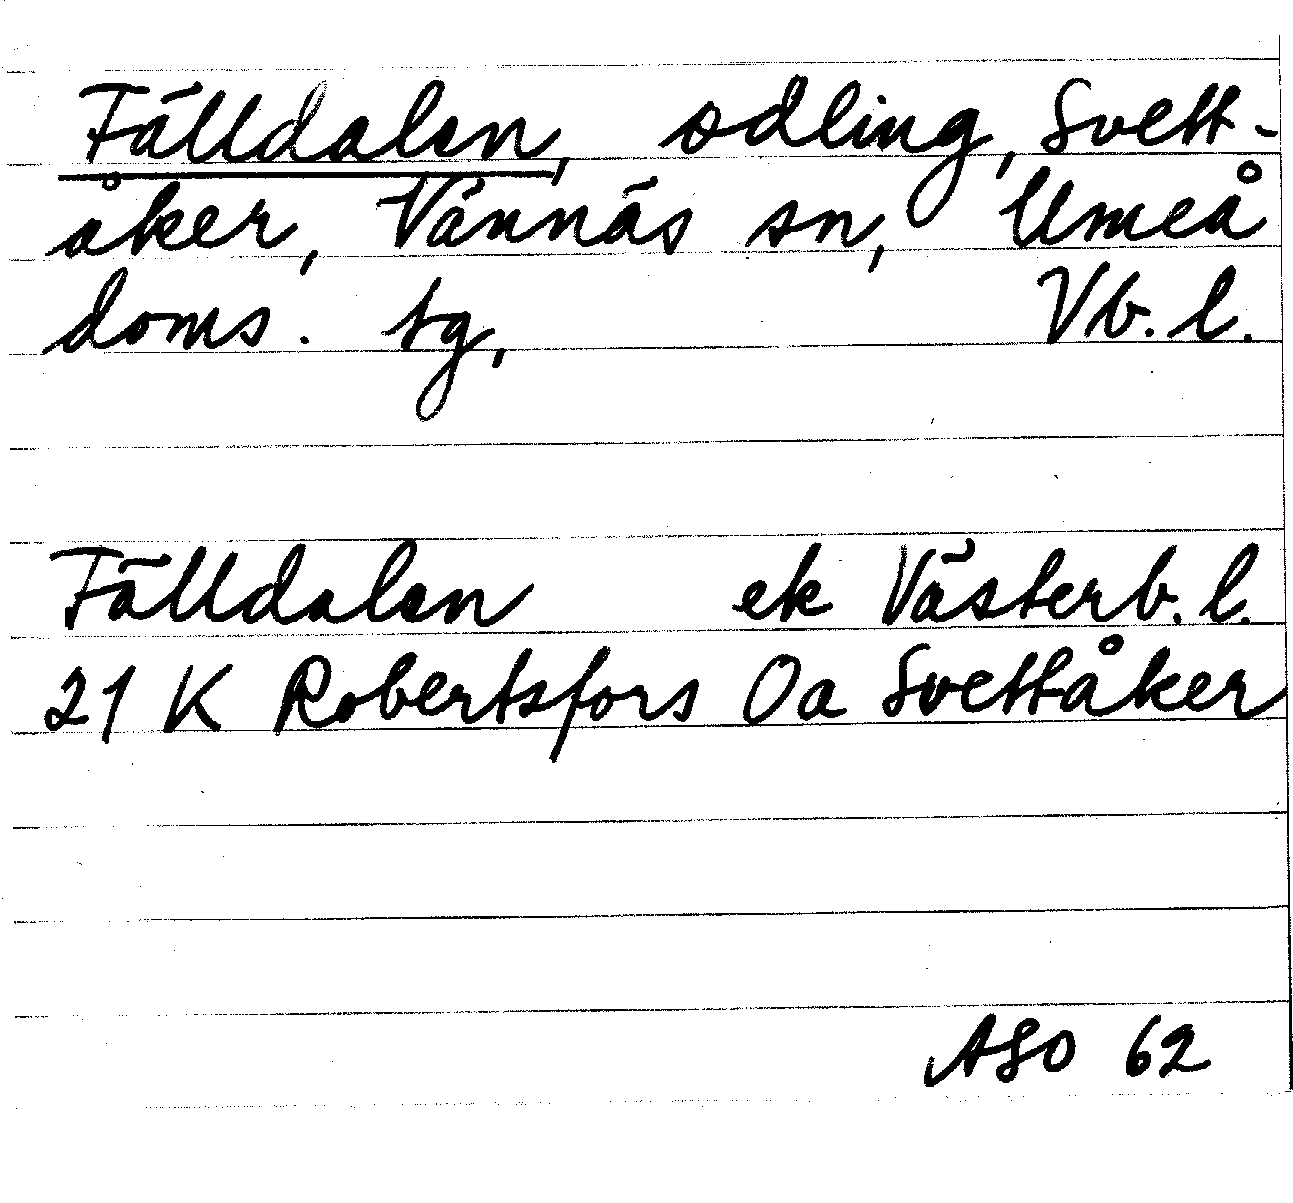 Fälldalen, odling, Svett-
åker, Vännäs sn, Umeå
doms. tg, Vb. l.
Fälldalen ek Västerb. l.
21 K Robertsfors Oa Svettåker
ASO 62